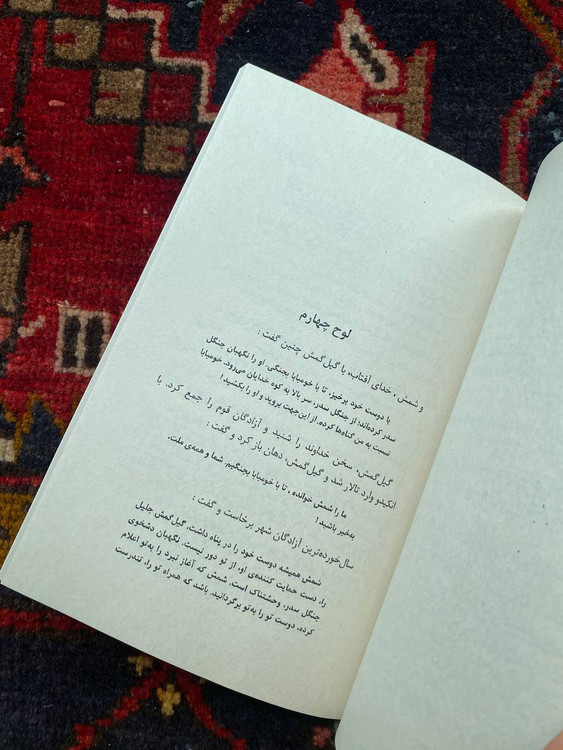 لوح چهارم
و شمش، خدای آفتاب، با گیل‌گمش چنین گفت:
با دوست خود برخیز، تا با خومبابا بجنگی. او را نگهبان جنگل
سدر کرده‌اند؛ از جنگل سدر، سر بالا به کوه خدایان می‌رود. خومبابا
نسبت به من گناه‌ها کرده، از این جهت بروید و او را بکشید!
گیل‌گمش، سخن خداوند را شنید و آزادگان قوم را جمع کرد. با
انکیدو وارد تالار شد و گیل‌گمش، دهان باز کرد و گفت:
ما را شمش خوانده، تا با خومبابا بجنگیم. شما و همه‌ی ملت،
به‌خیر باشید!
سال‌خورده‌ترین آزادگان شهر برخاست و گفت:
شمش همیشه دوست خود را در پناه داشت، گیل‌گمش جلیل
را. دست حمایت کننده‌ی او، از تو دور نیست. نگهبان دشخوی
جنگل سدر، وحشتناک است. شمش که آغاز نبرد را به‌تو اعلام
کرده، دوست تو را به‌تو برگردانید. باشد که همراه تو را، تندرست